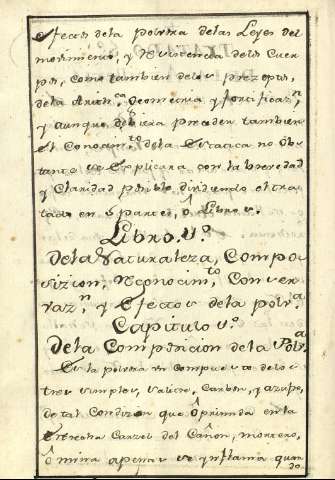 efectos dela polvora delas Leyes del
movimiento, y Resistencia delos Cuer
pos, como tambien delos preceptos,
dela Arith.ca Geometria y fortificaz.n,
y aunque debiera preceder tambien
el Conocim.to dela Estatica no obs
tante se esplicara con la brevedad
y Claridad posible dividiendo el tra
tado en partes, ô Libros.
Libro. 1º.
Dela Naturaleza, Compo
sizion, Reconocim.to, Conser
vaz.n, y Efectos dela polv.a
Capitulo 1º.
Dela Composicion dela Polv.a
Es la polvora un Compuesto delos
tres simples, salitre, Carbon, y azufre,
de tal Condizion que ôprimida en la
Estrecha Carzel del Cañon, mortero,
ô mina apenas se ynflama quan
do.